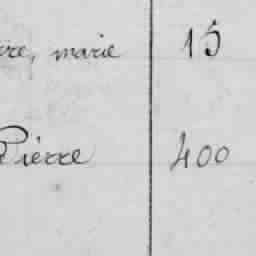 marie 15
Pierre 400